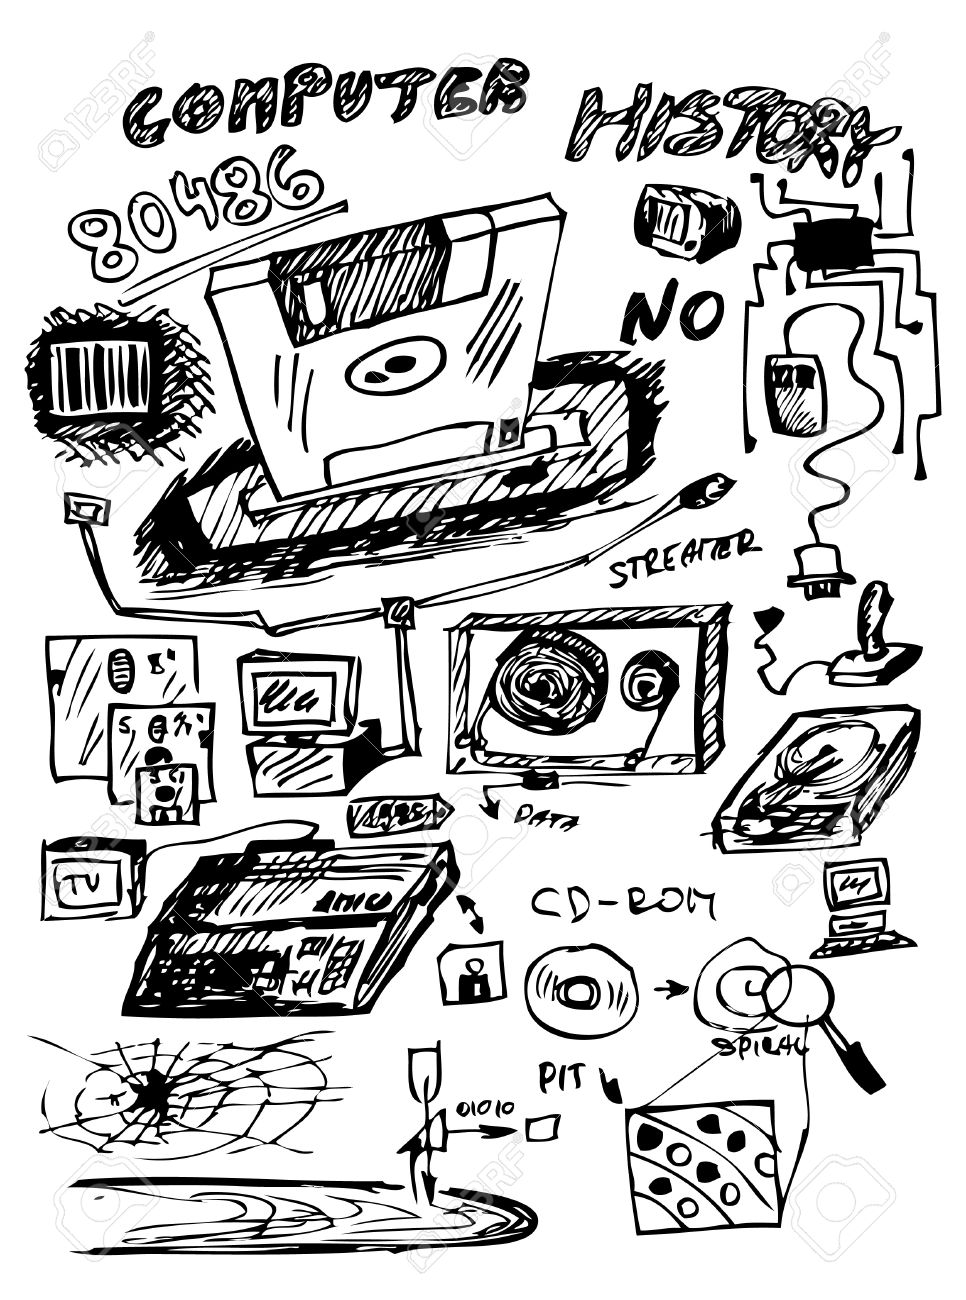 COMPUTER
HISTORY
80486
NO
STREAMER
DATA
TV
CD-ROM
SPIRAL
PIT
01010
123RF